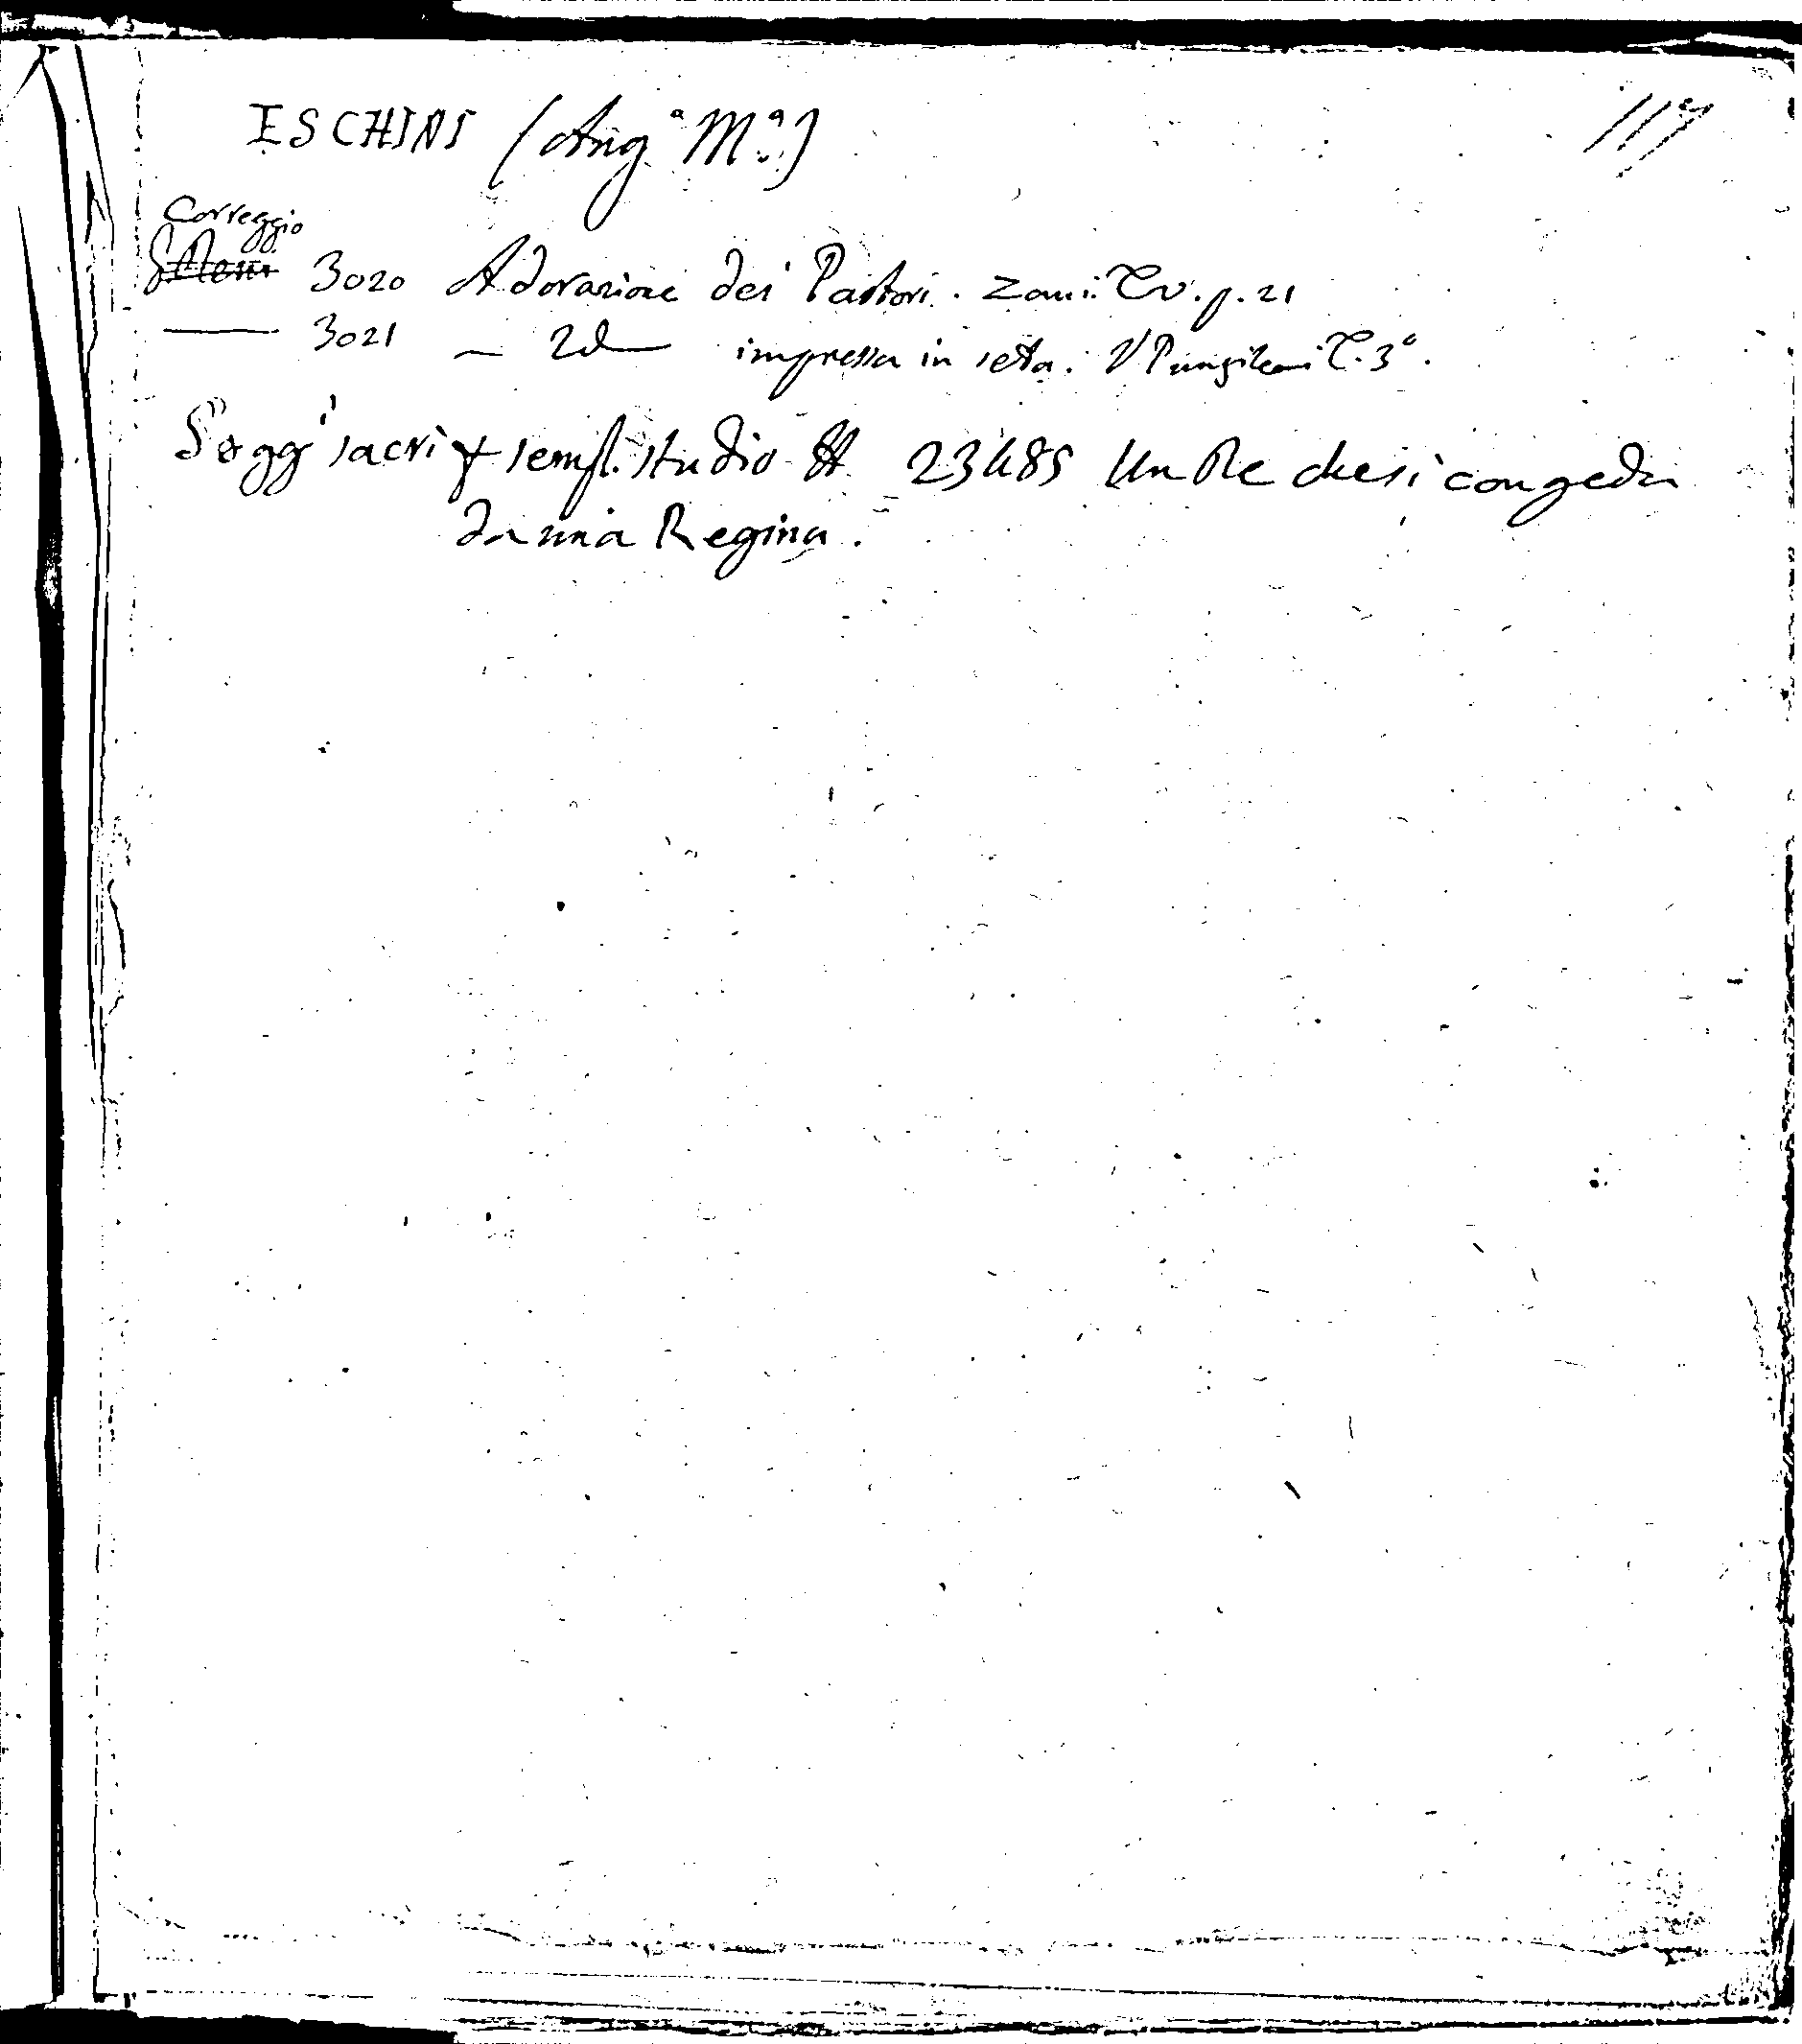 ESCHINI (Ang.ª M.ª)
117
Correggio
3020 Adorazione dei Pastori. Zani: T. V. p. 21
—— 3021 — Id— impressa in seta. V Pungileoni T. 3°.
Sogg' sacri f sempl. studio 23485 Un Re che si congeda
da una Regina.